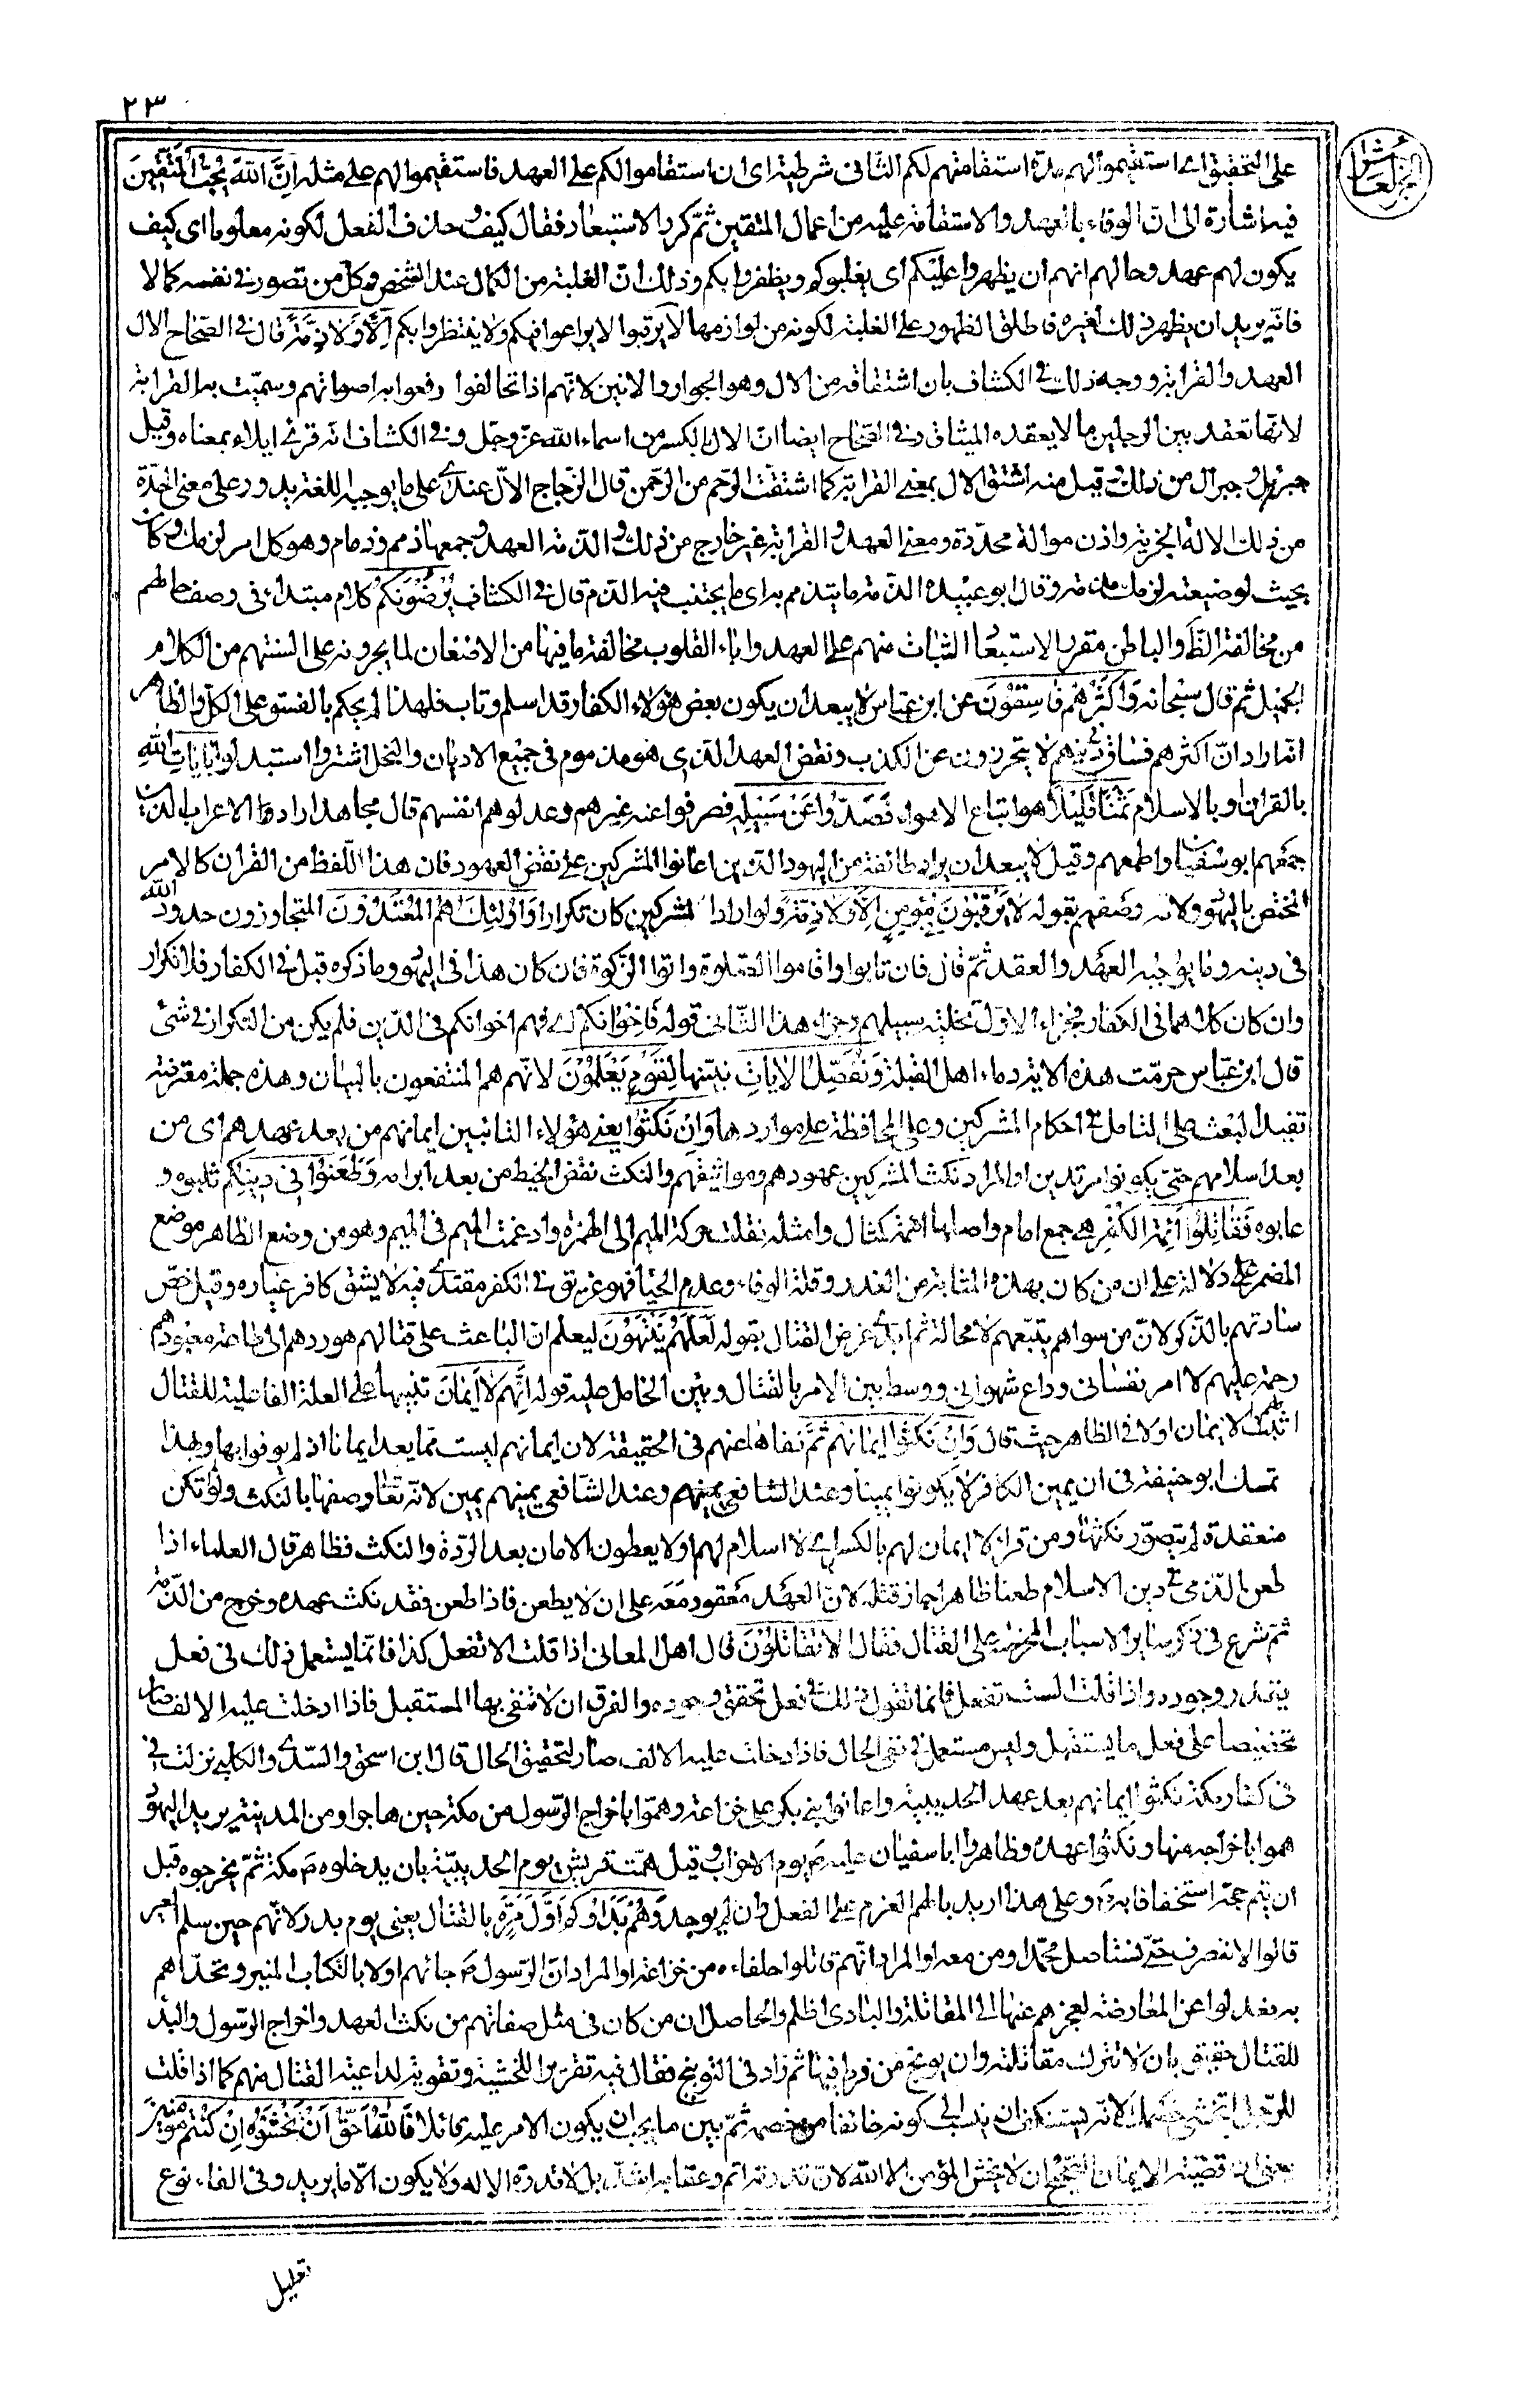 ٢٣
الجزء العاشر
على التحقيق اے استقيموا لهم مدة استقامتهم لكم الثانى شرطية اى ان استقاموا لكم على العهد فاستقيموا لهم على مثله اِنَّ اللّٰهَ يُحِبُّ الْمُتَّقِينَ
فيه اشارة الى ان الوفاء بالعهد والاستقامة عليه من اعمال المتقين ثم كرر الاستبعاد فقال كيف وحذف الفعل لكونه معلوما اى كيف
يكون لهم عهد وحالهم انهم ان يظهروا عليكم اى يغلبوكم ويظفروا بكم وذلك ان الغلبة من الكمال عند الشخص وكل من تصور فى نفسه كمالا
فانه يريد ان يظهر ذلك لغيره فاطلق الظهور على الغلبة لكونه من لوازمها لا يرقبوا لا يراعوا فيكم ولا ينتظروا بكم اِلًّا وَلَا ذِمَّةً قال فى الصحاح الال
العهد والقرابة ووجه ذلك فى الكشاف بان اشتقاقه من الال وهو الجوار والانين لانهم اذا تحالفوا رفعوا به اصواتهم وسميت به القرابة
لانها تعقد بين الرجلين ما لا يعقده الميثاق وفى الصحاح ايضا ان الال بالكسر من اسماء الله عز وجل وفى الكشاف انه قرئ ايلا بمعناه وقيل
جبريل وجبرال من ذلك وقيل منه اشتق الال بمعنى القرابة كما اشتقت الرحم من الرحمن قال الزجاج الال عندے على ما يوجبه اللغة يدور على معنى الحدة
من ذلك الالة الحربة واذن مواللة محددة ومعنى العهد والقرابة غير خارج من ذلك والذمة العهد وجمعها ذمم وذمام وهو كل امر لزمك وكان
بحيث لو ضيعته لزمك مذمة وقال ابو عبيده الذمة ما يتذمم به اى ما يجتنب فيه الذم قال فى الكشاف يُرْضُونَكُمْ كلام مبتدا فى وصف حالهم
من مخالفة الظاهر والباطن مقرر لاستبعاد الثبات منهم على العهد واباء القلوب مخالفة ما فيها من الاضغان لما يجرونه على السنتهم من الكلام
الجميل ثم قال سبحانه وَاَكْثَرُهُمْ فَاسِقُونَ عن ابن عباس لا يبعد ان يكون بعض هؤلاء الكفار قد اسلم وتاب فلهذا لم يحكم بالفسق على الكل والظاهر
انه اراد ان اكثرهم فساق فى دينهم لا يتحرزون عن الكذب ونقض العهد الذى هو مذموم فى جميع الاديان والنحل اشتروا استبدلوا بِاٰيَاتِ اللّٰهِ
بالقران او بالاسلام ثَمَنًا قَلِيلًا هو اتباع الاهواء فَصَدُّوا عَنْ سَبِيلِهِ فصرفوا عنه غيرهم وعدلوهم انفسهم قال مجاهد اراد الاعراب الذين
جمعهم ابو سفيان واطعمهم وقيل لا يبعد ان يراد طائفة من اليهود الذين اعانوا المشركين على نقض العهود فان هذا اللفظ من القران كالامر
المختص باليهود ولانه وصفهم بقوله لَا يَرْقُبُونَ فِى مُؤْمِنٍ اِلًّا وَلَا ذِمَّةً ولو اراد المشركين كان تكرارا وَاُولٰئِكَ هُمُ الْمُعْتَدُونَ المتجاوزون حدود الله
فى دينه وما يوجبه العهد والعقد ثم قال فان تابوا واقاموا الصلوة واتوا الزكوة فان كان هذا فى اليهود وما ذكره قبل فى الكفار فلا تكرار
وان كان كلاهما فى الكفار فجزاء الاول تخلية سبيلهم وجزاء هذا الثانى قوله فَاِخْوَانُكُمْ اے فهم اخوانكم فى الدين فلم يكن من التكرار فى شئ
قال ابن عباس حرمت هذه الاية دماء اهل القبلة وَنُفَصِّلُ الْاٰيَاتِ نبينها لِقَوْمٍ يَعْلَمُونَ لانهم هم المنتفعون بالبيان وهذه جملة معترضة
تفيد البعث على التامل فى احكام المشركين وعلى المحافظة على مواردها وَاِنْ نَكَثُوا يعنى هؤلاء التائبين ايمانهم من بعد عهدهم اى من
بعد اسلامهم حتى يكونوا مرتدين او المراد نكث المشركين عهودهم ومواثيقهم والنكث نقض الخيط من بعد ابرامه وَطَعَنُوا فِى دِينِكُمْ ثلبوه و
عابوه فَقَاتِلُوا اَئِمَّةَ الْكُفْرِ هى جمع امام واصلها اءممة كمثال وامثلة نقلت حركة الميم الى الهمزة وادغمت الميم فى الميم وهو من وضع الظاهر موضع
المضمر دلالة على ان من كان بهذه المثابة من الغدر وقلة الوفاء وعدم الحياء فهو عريق فى الكفر مقتدے فيه لا يشق كافر غباره وقيل خص
سادتهم بالذكر لان من سواهم يتبعهم لا محالة ثم ابدى غرض القتال بقوله لَعَلَّهُمْ يَنْتَهُونَ ليعلم ان الباعث على قتالهم هو ردهم الى طاعة معبودهم
رحمة عليهم لا امر نفسانى وداع شهوانى ووسط بين الامر بالقتال وبين الحامل عليه قوله اِنَّهُمْ لَا اَيْمَانَ تنبيها على العلة الفاعلية للقتال
اثبت لهم الايمان اولا فى الظاهر حيث قال وَاِنْ نَكَثُوا ايمانهم ثم نفاها عنهم فى الحقيقة لان ايمانهم ليست مما يعد ايمانا اذ لم يوفوا بها وبهذا
تمسك ابو حنيفة فى ان يمين الكافر لا يكون يمينا وعند الشافعى يمينهم يمين لانه تعالى وصفها بالنكث ولو لم تكن
منعقدة لم يتصور نكثها ومن قرأ لا ايمان لهم بالكسر اے لا اسلام لهم او لا يعطون الامان بعد الردة والنكث فظاهر قال العلماء اذا
طعن الذمى فى دين الاسلام طعنا ظاهرا جاز قتله لان العهد معقود معه على ان لا يطعن فاذا طعن فقد نكث عهده وخرج من الذمة
ثم شرع فى ذكر سائر الاسباب المحرضة على القتال فقال اَلَا تُقَاتِلُونَ قال اهل المعانى اذا قلت الا تفعل كذا فانما يستعمل ذلك فى فعل
يقدر وجوده واذا قلت الست تفعل فانما تقول ذلك فى فعل تحقق وجوده والفرق ان لا تنفى بها المستقبل فاذا ادخلت عليه الالف صار
تحضيضا على فعل ما يستقبل وليس مستعمل فى نفى الحال فاذا دخلت عليه الالف صار لتحقيق الحال قال ابن اسحق والسدے والكلبى نزلت فى
كفار مكة نكثوا ايمانهم بعد عهد الحديبية واعانوا بنى بكر على خزاعة وهموا باخراج الرسول من مكة حين هاجر او من المدينة يريد اليهود
هموا باخراجه منها ونكثوا عهده وظاهروا ابا سفيان عليه يوم الاحزاب وقيل همت قريش يوم الحديبية بان يدخلوه مكة ثم يخرجوه قبل
ان يتم حجه استخفافا به وعلى هذا اريد بالهم العزم على الفعل وان لم يوجد وَهُمْ بَدَاُوكُمْ اَوَّلَ مَرَّةٍ بالقتال يعنى يوم بدر لانهم حين سلم العير
قالوا لا ننصرف حتى نستاصل محمدا ومن معه او المراد انهم قاتلوا حلفاءه من خزاعة او المراد ان الرسول جاءهم اولا بالكتاب المنير وتحداهم
به فعدلوا عن المعارضة لعجزهم عنها الى المقاتلة والبادى اظلم والحاصل ان من كان فى مثل صفاتهم من نكث العهد واخراج الرسول والبدء
للقتال حقيق بان لا تترك مقاتلته وان يوبخ من فرط فيها ثم زاد فى التوبيخ فقال فيه تقريرا للخشية وتقوية لداعية القتال منهم كما اذا قلت
للرجل اتخشى خصمك لانه يستنكف ان ينسب الى كونه خائفا من خصمه ثم بين ما يجب ان يكون الامر عليه قائلا فَاللّٰهُ اَحَقُّ اَنْ تَخْشَوْهُ اِنْ كُنْتُمْ مُؤْمِنِينَ
يعنى ان قضية الايمان الصحيح ان لا يخشى المؤمن الا الله لان قدرته اتم وعقابه اشد بل لا قدرة الا له ولا يكون الا ما يريد وفى الفاء نوع
تعليل